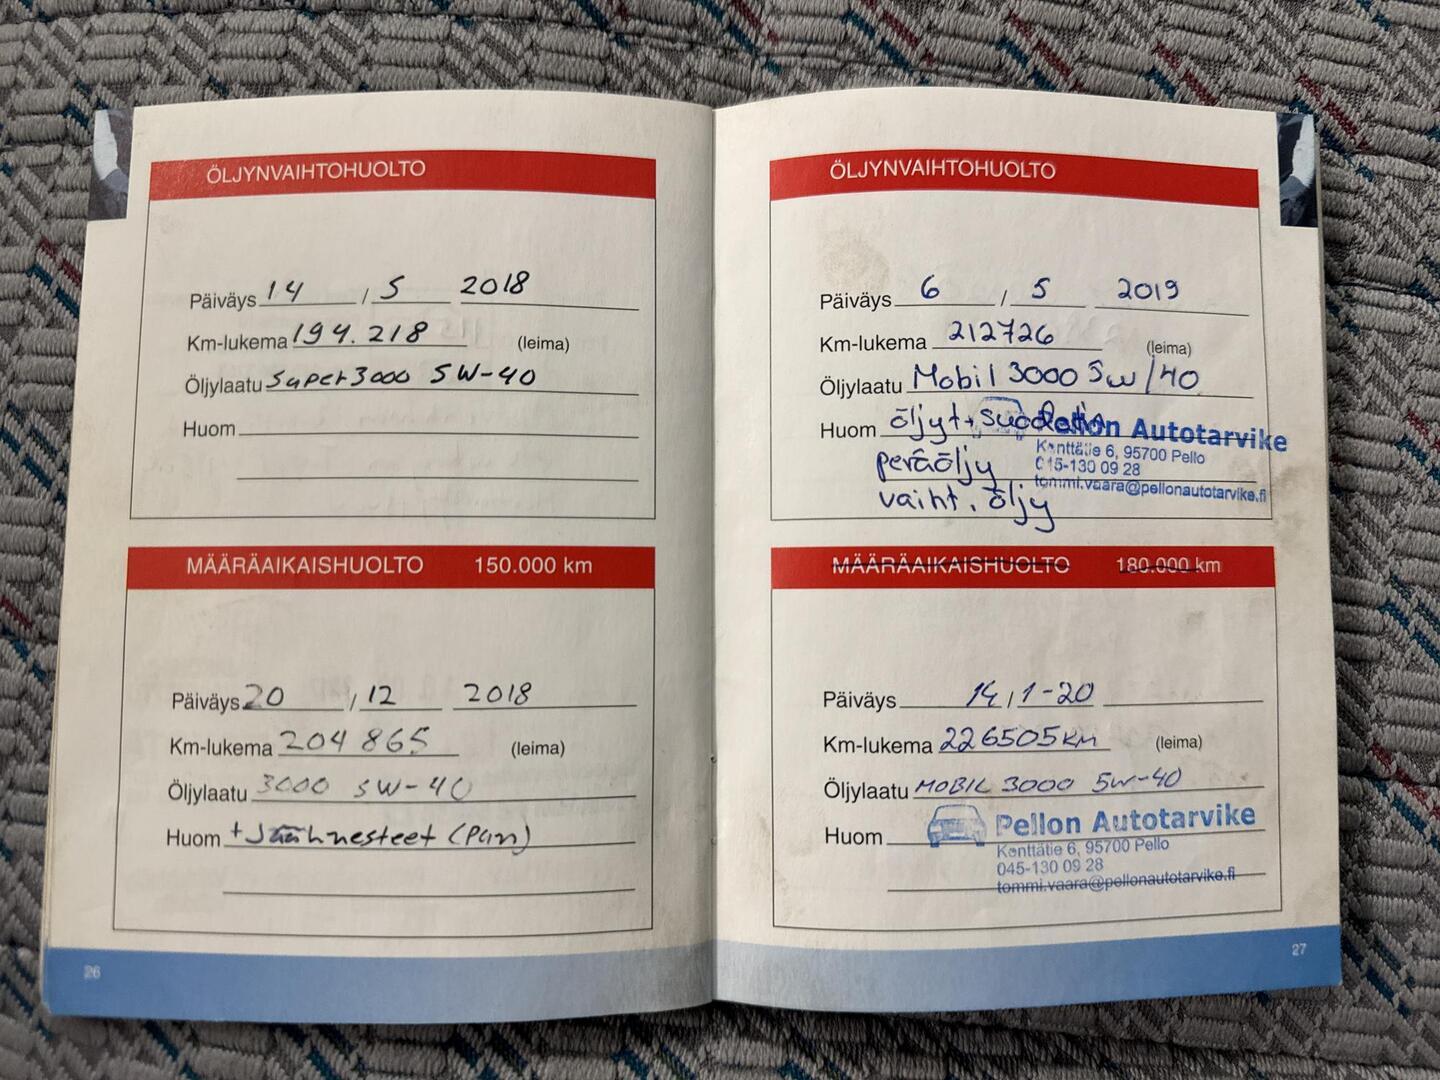 ÖLJYNVAIHTOHUOLTO
Päiväys 14 / 5 2018
Km-lukema 194.218 (leima)
Öljylaatu Super 3000 5W-40
Huom
MÄÄRÄAIKAISHUOLTO 150.000 km
Päiväys 20 / 12 2018
Km-lukema 204 865 (leima)
Öljylaatu 3000 5W-40
Huom + Jäähnesteet (Pun)
26
ÖLJYNVAIHTOHUOLTO
Päiväys 6 / 5 2019
Km-lukema 212726 (leima)
Öljylaatu Mobil 3000 5w/40
Huom öljyt + suodatin
peräöljy
vaiht. öljy
Pellon Autotarvike
Kenttätie 6, 95700 Pello
045-130 09 28
tommi.vaara@pellonautotarvike.fi
MÄÄRÄAIKAISHUOLTO 180.000 km
Päiväys 14 / 1-20
Km-lukema 226505 KM (leima)
Öljylaatu MOBIL 3000 5W-40
Huom
Pellon Autotarvike
Kenttätie 6, 95700 Pello
045-130 09 28
tommi.vaara@pellonautotarvike.fi
27